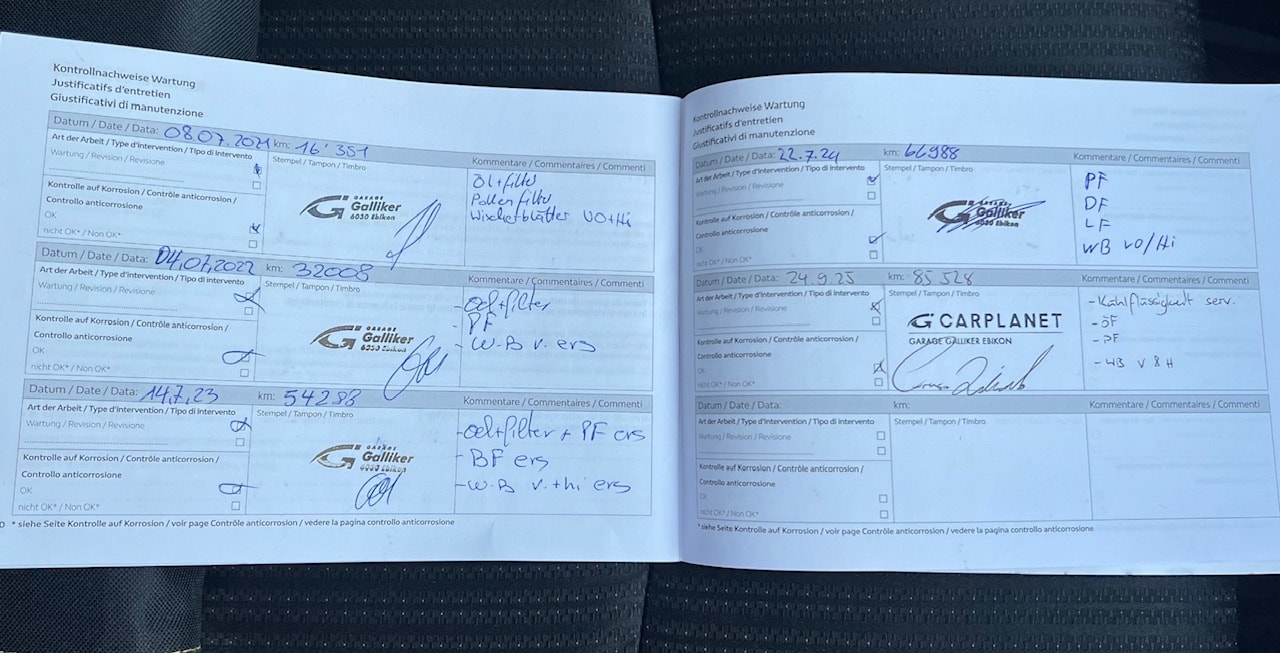 Kontrollnachweise Wartung
Justificatifs d'entretien
Giustificativi di manutenzione
Datum / Date / Data: 08.07.2021 km: 16'351
Art der Arbeit / Type d'intervention / Tipo di intervento
Stempel / Tampon / Timbro
Kommentare / Commentaires / Commenti
Wartung / Revision / Revisione
Kontrolle auf Korrosion / Contrôle anticorrosion /
Controllo anticorrosione
OK
nicht OK* / Non OK*
GARAGE
Galliker
6030 Ebikon
Öl+filter
Pollenfilter
Wischerblätter VO+Hi
Datum / Date / Data: 04.07.2022 km: 32008
Art der Arbeit / Type d'intervention / Tipo di intervento
Stempel / Tampon / Timbro
Kommentare / Commentaires / Commenti
Wartung / Revision / Revisione
Kontrolle auf Korrosion / Contrôle anticorrosion /
Controllo anticorrosione
OK
nicht OK* / Non OK*
GARAGE
Galliker
6030 Ebikon
- Oel+filter
- PF
- W.B v. ers
Datum / Date / Data: 14.7.23 km: 54288
Art der Arbeit / Type d'intervention / Tipo di intervento
Stempel / Tampon / Timbro
Kommentare / Commentaires / Commenti
Wartung / Revision / Revisione
Kontrolle auf Korrosion / Contrôle anticorrosion /
Controllo anticorrosione
OK
nicht OK* / Non OK*
GARAGE
Galliker
6030 Ebikon
- Oel+filter + PF ers
- BF ers
- W.B v.+hi ers
* siehe Seite Kontrolle auf Korrosion / voir page Contrôle anticorrosion / vedere la pagina controllo anticorrosione
Kontrollnachweise Wartung
Justificatifs d'entretien
Giustificativi di manutenzione
Datum / Date / Data: 22.7.24 km: 66988
Art der Arbeit / Type d'intervention / Tipo di intervento
Stempel / Tampon / Timbro
Kommentare / Commentaires / Commenti
Wartung / Revision / Revisione
Kontrolle auf Korrosion / Contrôle anticorrosion /
Controllo anticorrosione
OK
nicht OK* / Non OK*
GARAGE
Galliker
6030 Ebikon
PF
DF
LF
WB VO/Hi
Datum / Date / Data: 24.9.25 km: 85528
Art der Arbeit / Type d'intervention / Tipo di intervento
Stempel / Tampon / Timbro
Kommentare / Commentaires / Commenti
Wartung / Revision / Revisione
Kontrolle auf Korrosion / Contrôle anticorrosion /
Controllo anticorrosione
OK
nicht OK* / Non OK*
G CARPLANET
GARAGE GALLIKER EBIKON
- Kühlflüssigkeit serv.
- ÖF
- PF
- WB V & H
Datum / Date / Data: km:
Art der Arbeit / Type d'intervention / Tipo di intervento
Stempel / Tampon / Timbro
Kommentare / Commentaires / Commenti
Wartung / Revision / Revisione
Kontrolle auf Korrosion / Contrôle anticorrosion /
Controllo anticorrosione
OK
nicht OK* / Non OK*
* siehe Seite Kontrolle auf Korrosion / voir page Contrôle anticorrosion / vedere la pagina controllo anticorrosione